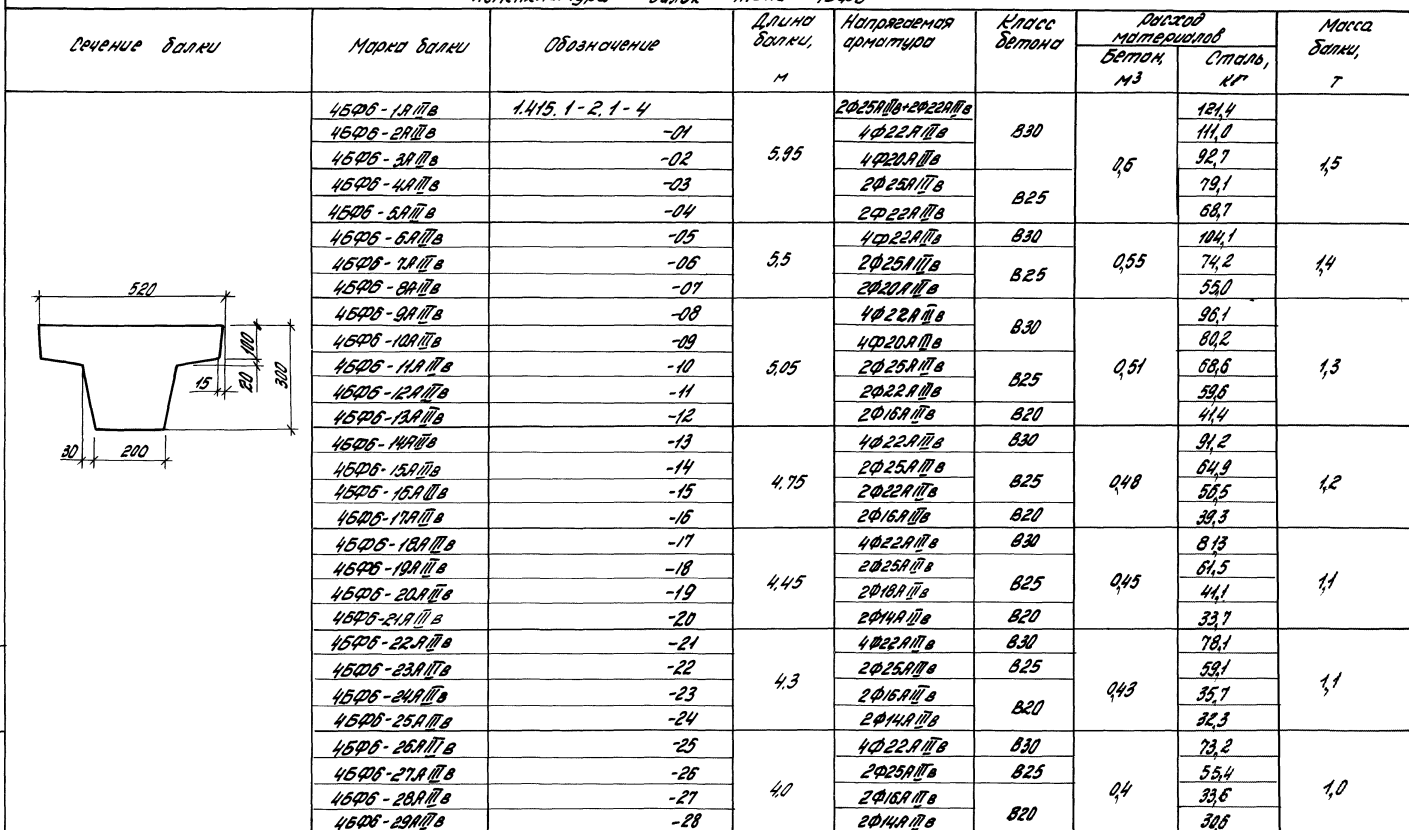 Номенклатура балок типа 4БФ6
Сечение балки | Марка балки | Обозначение | Длина балки, м | Напрягаемая арматура | Класс бетона | Расход материалов | Масса балки, т
Бетон, м3 | Сталь, кг
4БФ6-1АIIIв | 1.415.1-2.1-4 | 5,95 | 2Ф25АIIIв+2Ф22АIIIв | В30 | 0,6 | 121,4 | 1,5
4БФ6-2АIIIв | -01 | 4Ф22АIIIв | 111,0
4БФ6-3АIIIв | -02 | 4Ф20АIIIв | 92,7
4БФ6-4АIIIв | -03 | 2Ф25АIIIв | В25 | 79,1
4БФ6-5АIIIв | -04 | 2Ф22АIIIв | 68,7
4БФ6-6АIIIв | -05 | 5,5 | 4Ф22АIIIв | В30 | 0,55 | 104,1 | 1,4
4БФ6-7АIIIв | -06 | 2Ф25АIIIв | В25 | 74,2
4БФ6-8АIIIв | -07 | 2Ф20АIIIв | 55,0
4БФ6-9АIIIв | -08 | 5,05 | 4Ф22АIIIв | В30 | 0,51 | 96,1 | 1,3
4БФ6-10АIIIв | -09 | 4Ф20АIIIв | 80,2
4БФ6-11АIIIв | -10 | 2Ф25АIIIв | В25 | 68,6
4БФ6-12АIIIв | -11 | 2Ф22АIIIв | 59,6
4БФ6-13АIIIв | -12 | 2Ф16АIIIв | В20 | 41,4
4БФ6-14АIIIв | -13 | 4,75 | 4Ф22АIIIв | В30 | 0,48 | 91,2 | 1,2
4БФ6-15АIIIв | -14 | 2Ф25АIIIв | В25 | 64,9
4БФ6-16АIIIв | -15 | 2Ф22АIIIв | 56,5
4БФ6-17АIIIв | -16 | 2Ф16АIIIв | В20 | 39,3
4БФ6-18АIIIв | -17 | 4,45 | 4Ф22АIIIв | В30 | 0,45 | 81,3 | 1,1
4БФ6-19АIIIв | -18 | 2Ф25АIIIв | В25 | 61,5
4БФ6-20АIIIв | -19 | 2Ф18АIIIв | 41,1
4БФ6-21АIIIв | -20 | 2Ф14АIIIв | В20 | 33,7
4БФ6-22АIIIв | -21 | 4,3 | 4Ф22АIIIв | В30 | 0,43 | 78,1 | 1,1
4БФ6-23АIIIв | -22 | 2Ф25АIIIв | В25 | 59,1
4БФ6-24АIIIв | -23 | 2Ф16АIIIв | В20 | 35,7
4БФ6-25АIIIв | -24 | 2Ф14АIIIв | 32,3
4БФ6-26АIIIв | -25 | 4,0 | 4Ф22АIIIв | В30 | 0,4 | 73,2 | 1,0
4БФ6-27АIIIв | -26 | 2Ф25АIIIв | В25 | 55,4
4БФ6-28АIIIв | -27 | 2Ф16АIIIв | В20 | 33,6
4БФ6-29АIIIв | -28 | 2Ф14АIIIв | 30,6
520
100
300
15
20
30
200